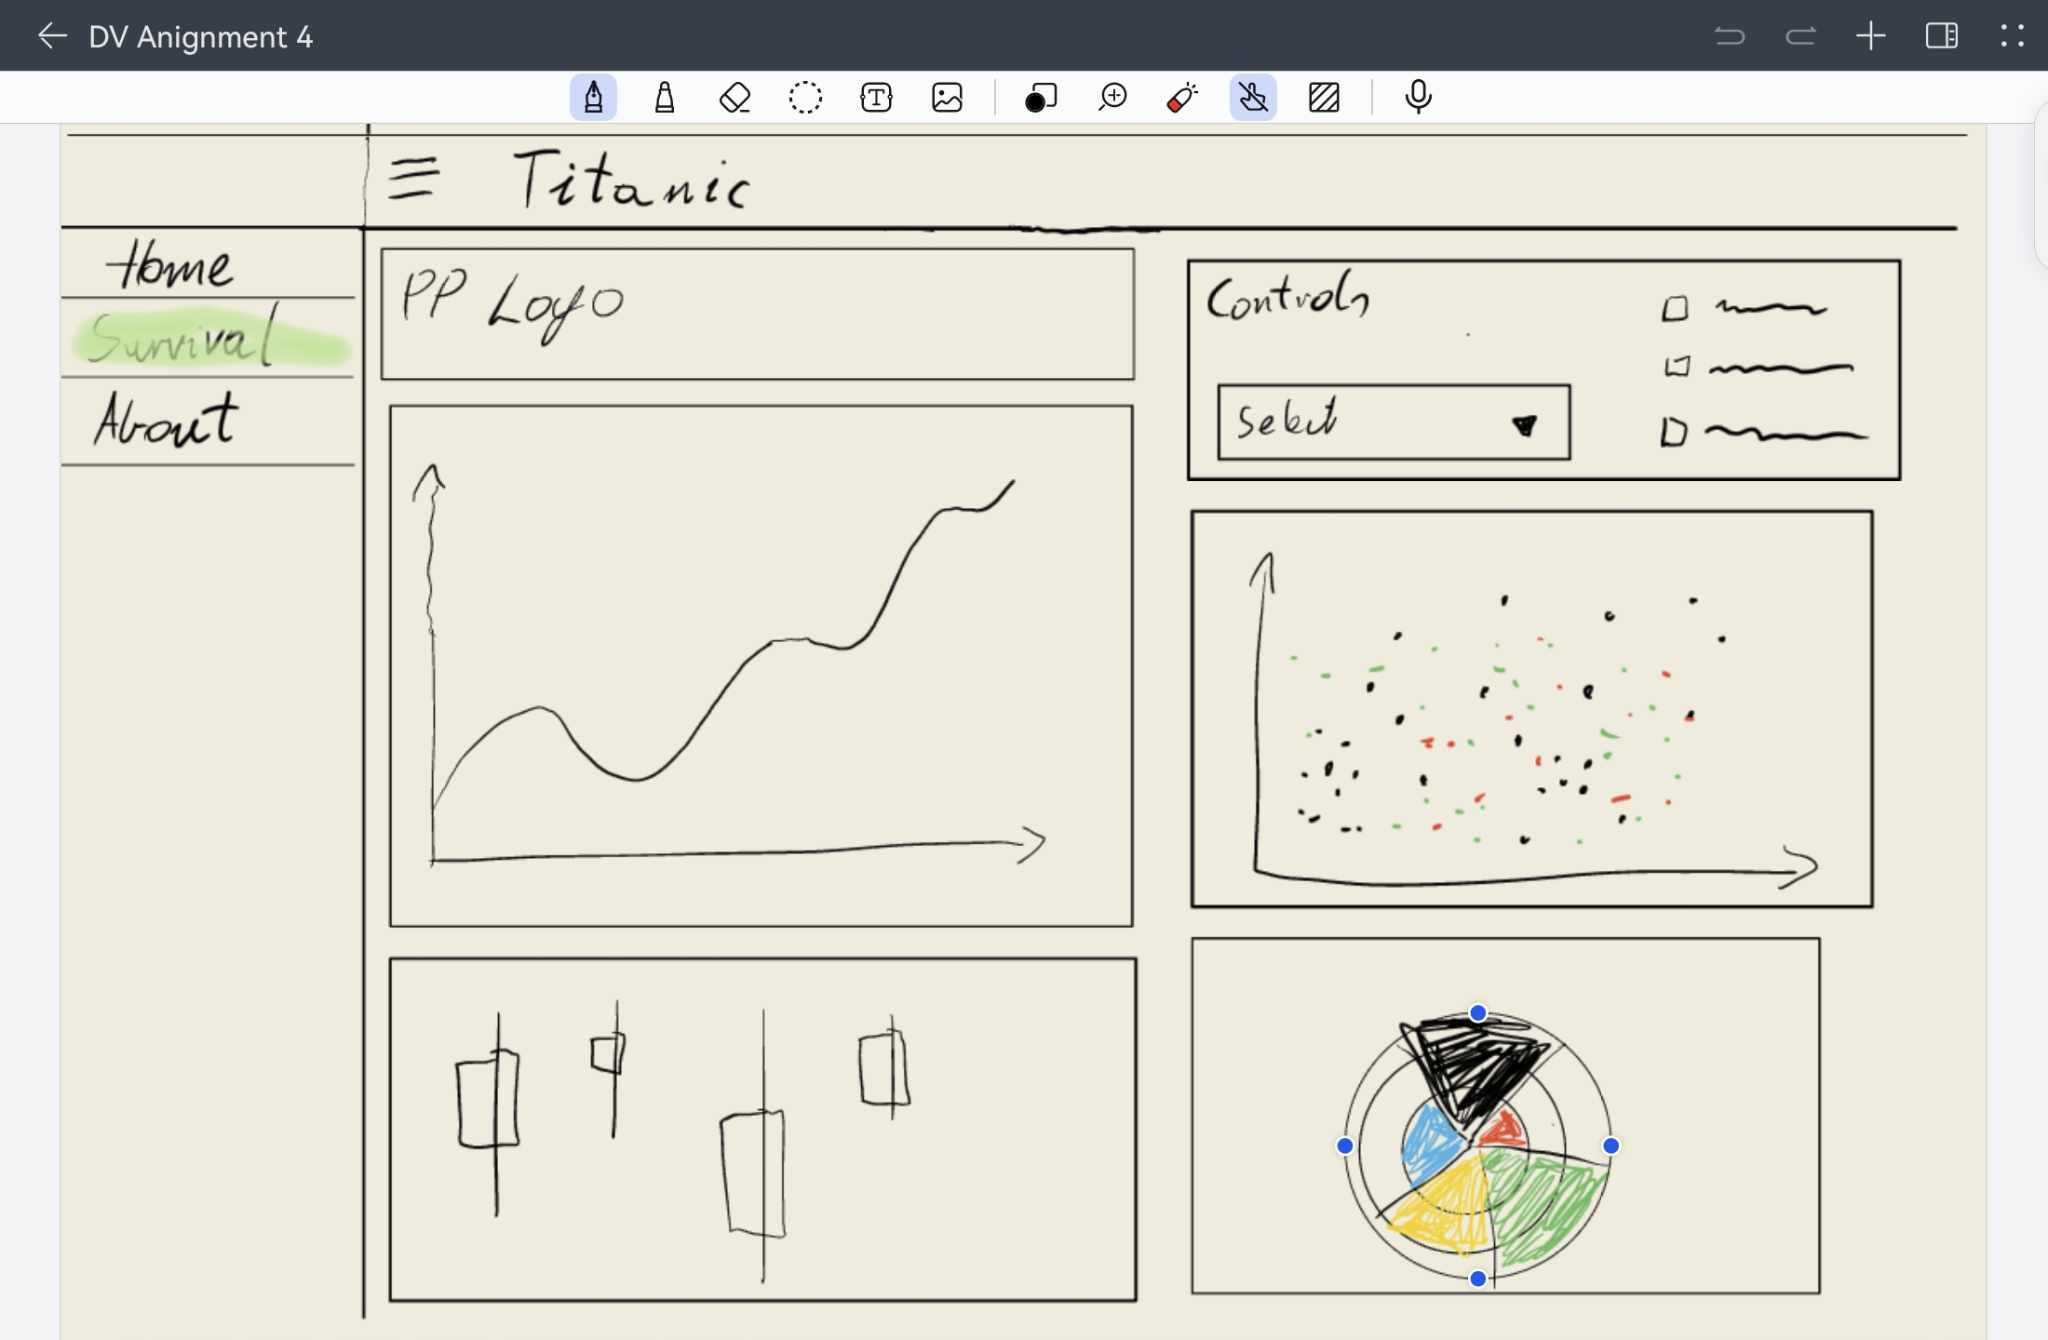 DV Anignment 4
Titanic
Home
Survival
About
PP Logo
Controls
Select